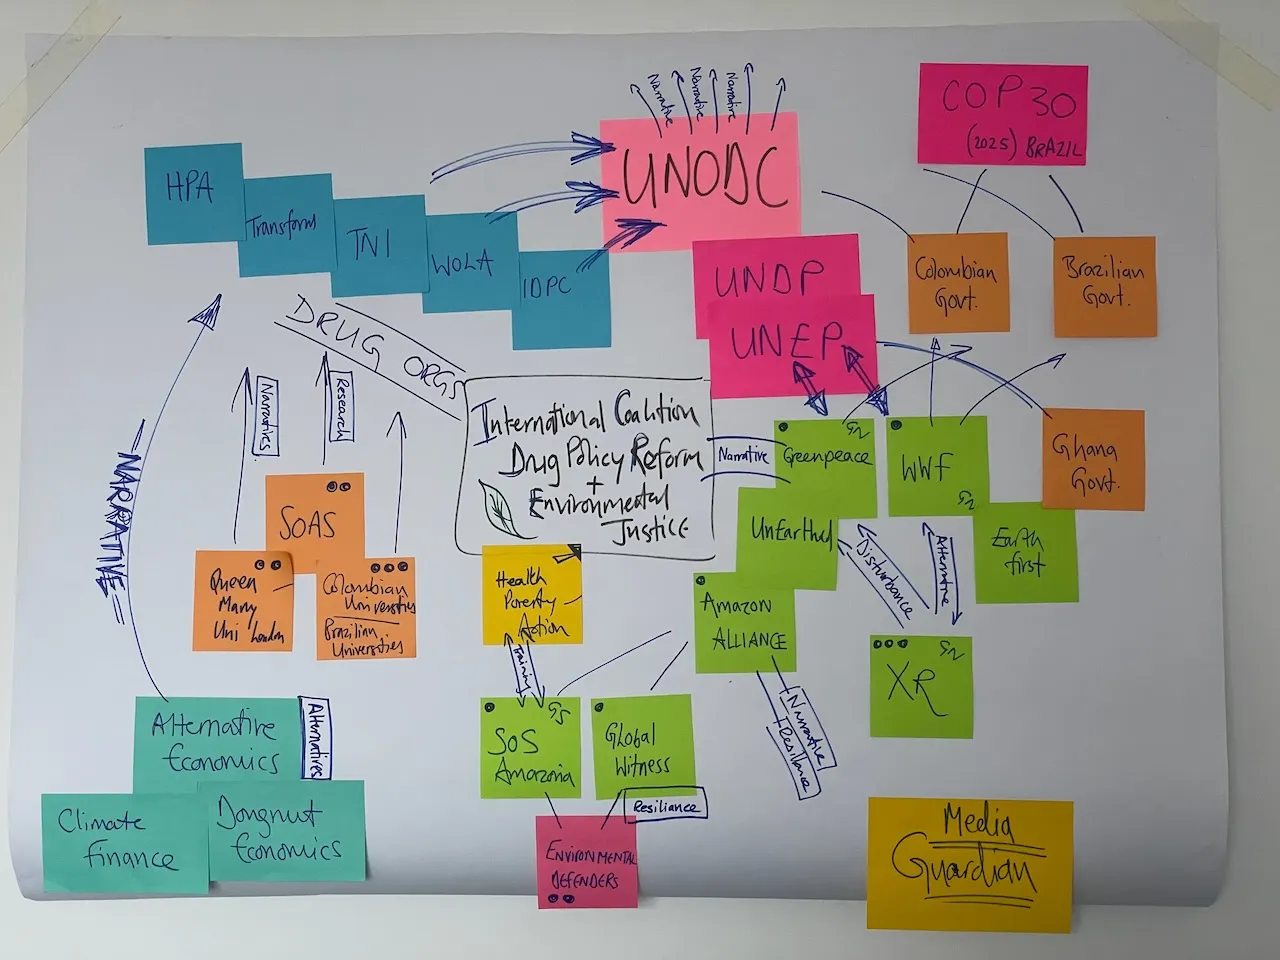 Narrative
Narrative
Narrative
UNODC
COP 30
(2025) BRAZIL
HPA
Transform
TNI
WOLA
IDPC
UNDP
UNEP
Colombian
Govt.
Brazilian
Govt.
DRUG ORGS
Narratives
Research
International Coalition
Drug Policy Reform
+
Environmental
Justice
Narrative
Greenpeace
WWF
Ghana
Govt.
=NARRATIVE=
SOAS
Unearthed
Earth
first
Queen
Mary
Uni London
Colombian
Universities
Brazilian
Universities
Health
Poverty
Action
Disturbance
Alternative
Amazon
ALLIANCE
Training
XR
Alternative
Economics
Alternatives
SOS
Amazonia
Global
Witness
Narrative
+Resiliance
Resiliance
Climate
finance
Dougnut
Economics
ENVIRONMENTAL
DEFENDERS
Media
Guardian